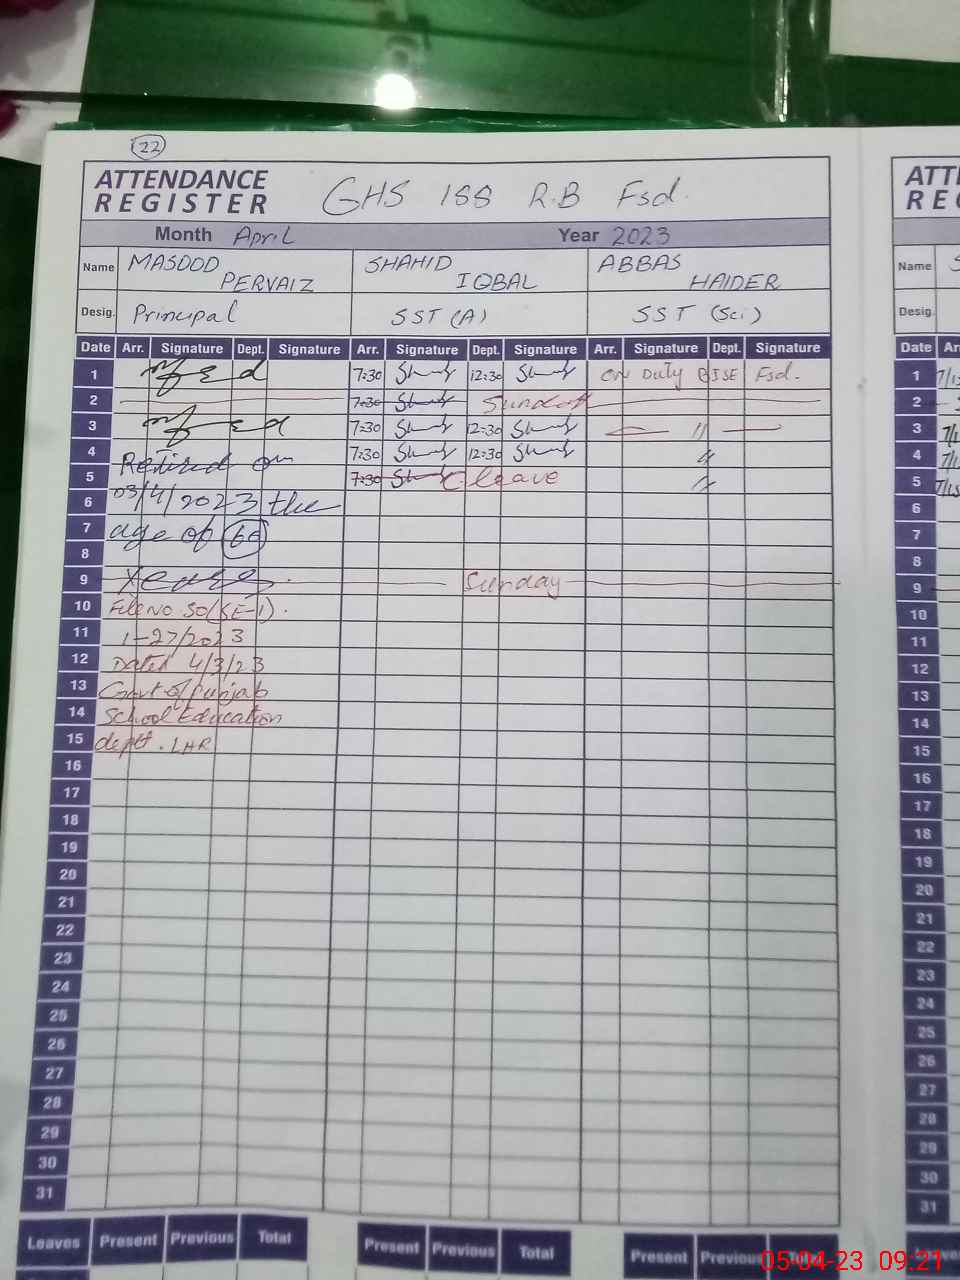 22
ATTENDANCE REGISTER
GHS 188 R.B Fsd.
Month April Year 2023
Name MASOOD PERVAIZ SHAHID IQBAL ABBAS HAIDER
Desig. Principal SST (A) SST (Sci)
Date Arr. Signature Dept. Signature Arr. Signature Dept. Signature Arr. Signature Dept. Signature
1 7:30 12:30 On Duty BISE Fsd.
2 7:30 Sunday
3 7:30 12:30 "
4 Retired on 7:30 12:30 "
5 03/4/2023 the 7:30 C leave "
6
7 age of 60
8
9 Years. Sunday
10 File No SO(SE-1).
11 1-27/2023
12 Dated 4/3/23
13 Govt of Punjab
14 School Education
15 deptt. LHR
16
17
18
19
20
21
22
23
24
25
26
27
28
29
30
31
Leaves Present Previous Total Present Previous Total Present Previous Total
ATT
RE
Name S
Desig.
Date Ar
1 7/15
2
3
4
5 7/15
6
7
8
9
10
11
12
13
14
15
16
17
18
19
20
21
22
23
24
25
26
27
28
29
30
31
05-04-23 09:21